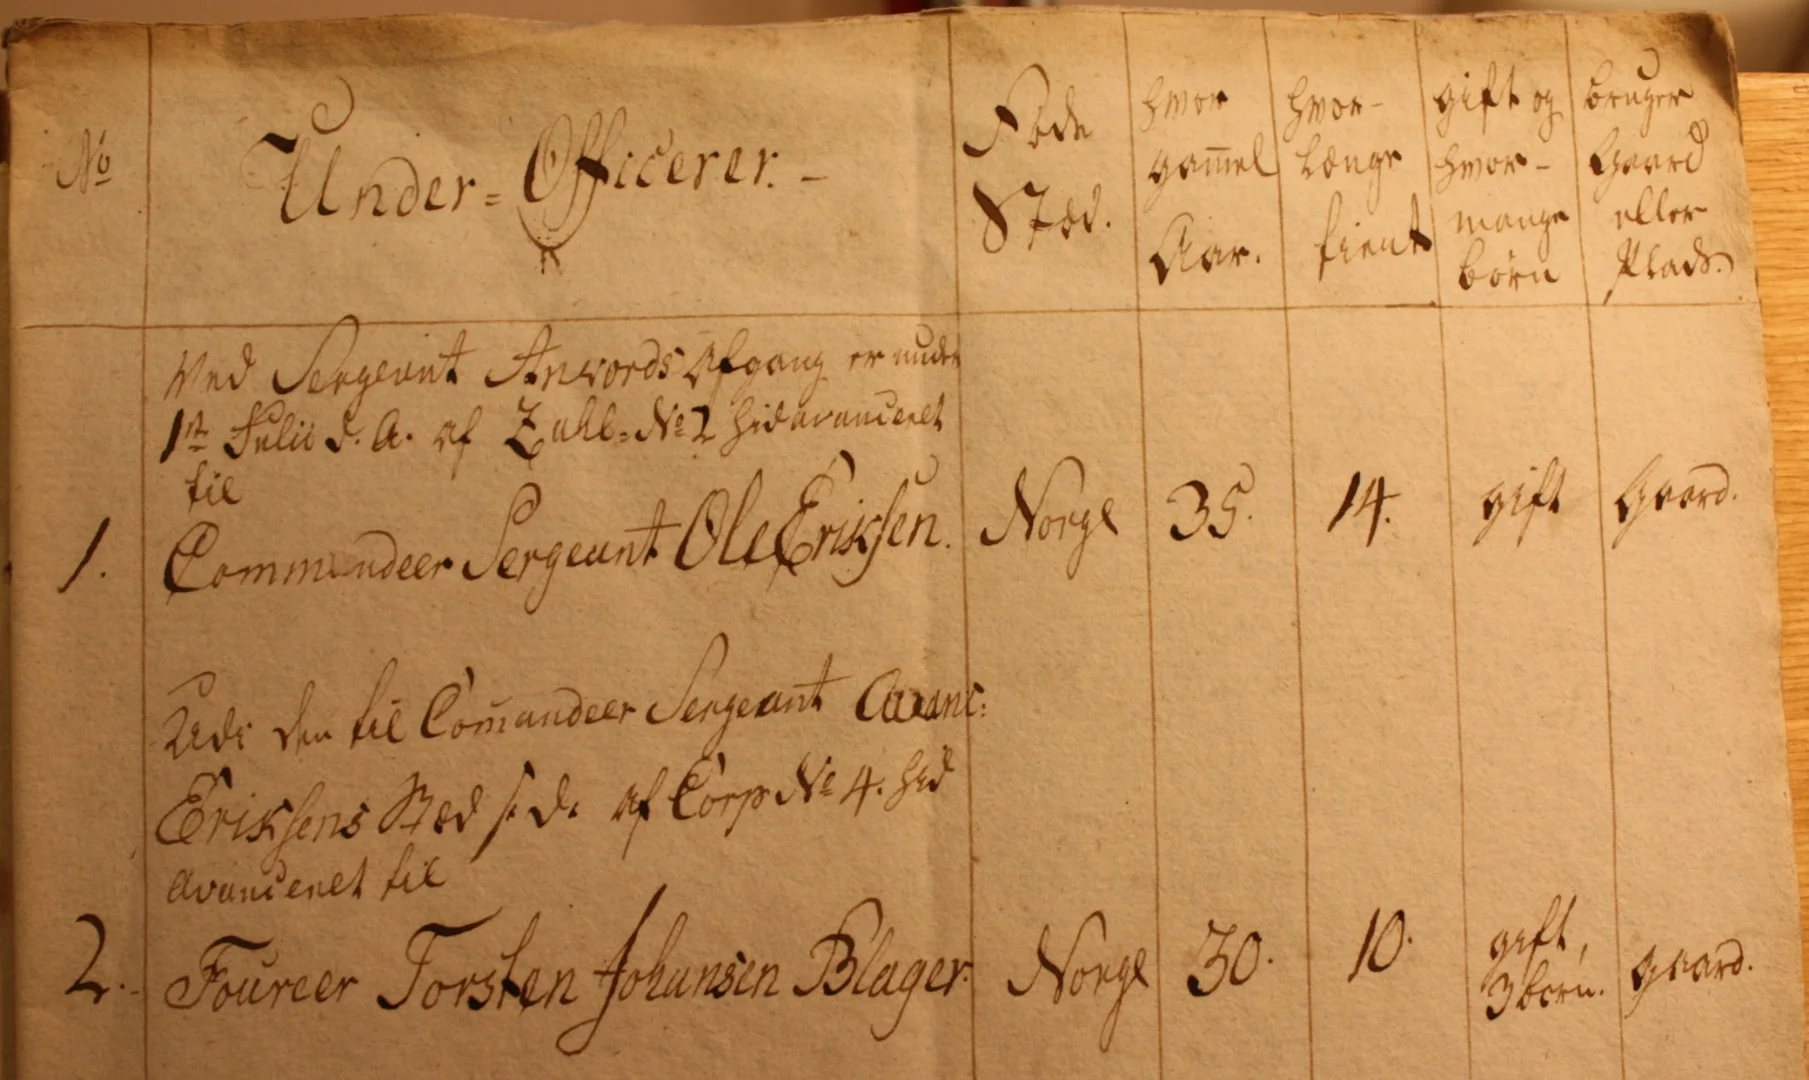 No
Under=Officerer.-
Føde
Stæd.
hvor
gam̄el
Aar.
hvor-
længe
tient
gift og
hvor-
mange
børn
bruger
Gaard
eller
Plads.
Ved Sergeant Anvords Afgang er under
1ste Julii d. A. af Zahl=No 2 hid avanceret
til
1. Commendeer Sergeant Ole Eriksen. Norge 35. 14. gift Gaard.
Udi den til Com̄andeer Sergeant Avanc:
Eriksens Stæd s. d. af Corp No 4. hid
Avanceret til
2. Foureer Torsten Johansen Blager. Norge 30. 10. gift, 3 børn. gaard.